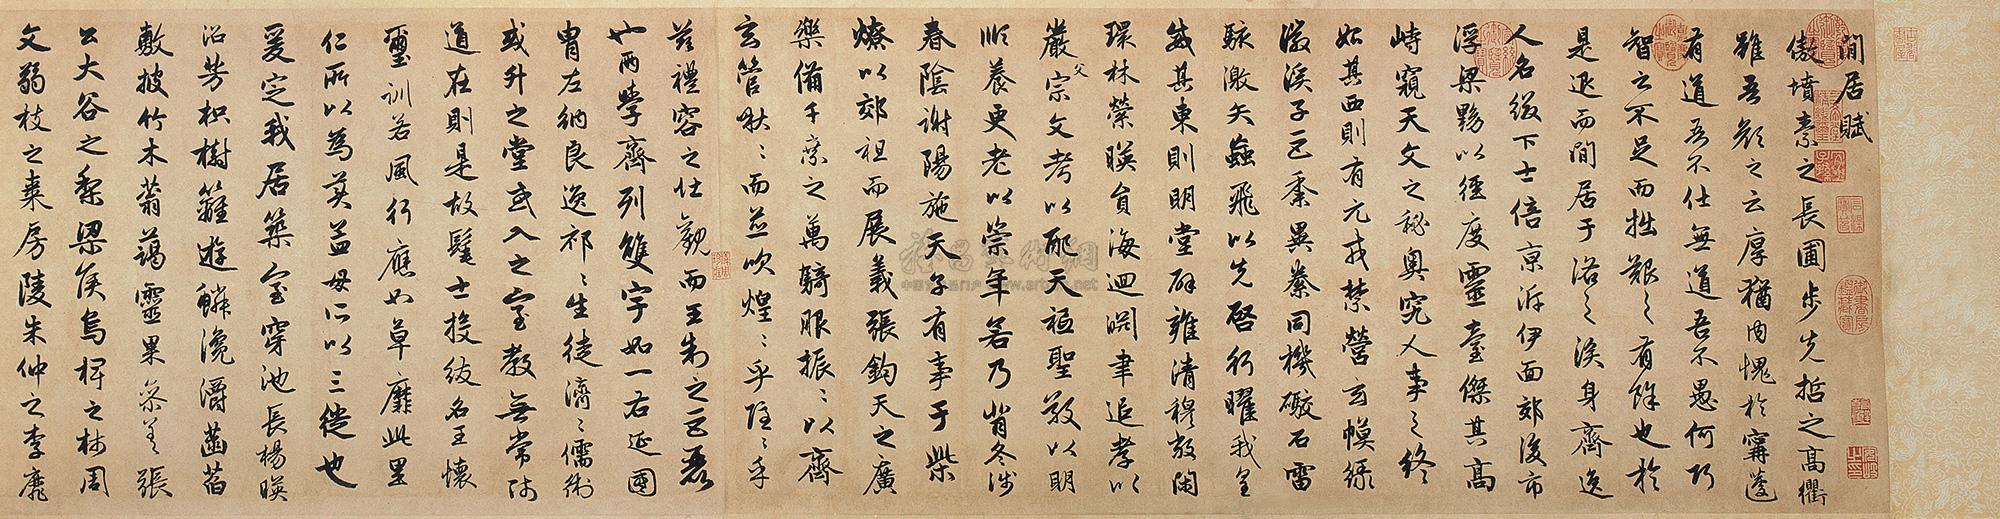 閒居賦
傲墳素之長圃步先哲之高衢
雖吾顏之云厚猶內愧於甯蘧
有道吾不仕無道吾不愚何巧
智之不足而拙艱之有餘也於
是退而閒居于洛之涘身齊逸
人名綴下士倍京泝伊面郊後市
浮梁黝以徑度靈臺傑其高
峙窺天文之秘奧究人事之終
始其西則有元戎禁營玄幙綠
徽溪子巨黍異絭同機礮石雷
駭激矢蝱飛以先啓行曜我皇
威其東則明堂辟雍清穆敞閑
環林縈暎圓海迴淵聿追孝以
嚴父宗文考以配天祗聖敬以明
順養更老以崇年若乃背冬涉
春陰謝陽施天子有事于柴
燎以郊祖而展義張鈞天之廣
樂備千乘之萬騎服振〻以齊
玄管啾〻而並吹煌〻乎隱〻乎
茲禮容之壯觀而王制之巨麗
也兩學齊列雙宇如一右延國
胄左納良逸祁〻生徒濟〻儒術
或升之堂或入之室教無常師
道在則是故髦士投紱名王懷
璽訓若風行應如草靡此里
仁所以為美孟母所以三徙也
爰定我居築室穿池長楊暎
沼芳枳樹籬遊鱗瀺灂菡萏
敷披竹木蓊藹靈果參差張
公大谷之梨梁侯烏椑之柿周
文弱枝之棗房陵朱仲之李靡